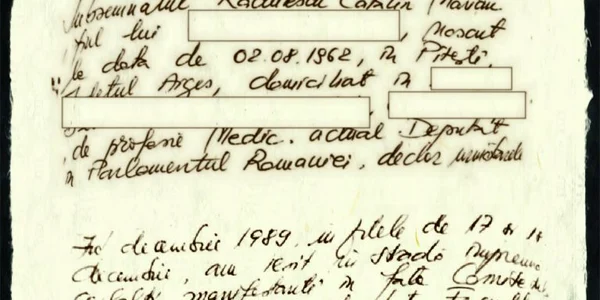 Subsemnatul Rădulescu Cătălin Marian
fiul lui , născut
la data de 02.08.1962, în Pitești,
județul Argeș, domiciliat în
de profesie Medic. actual Deputat
în Parlamentul României, declar următoarele
În decembrie 1989, în zilele de 17 și 18
decembrie, am ieșit în stradă împreună
manifestanți în fața